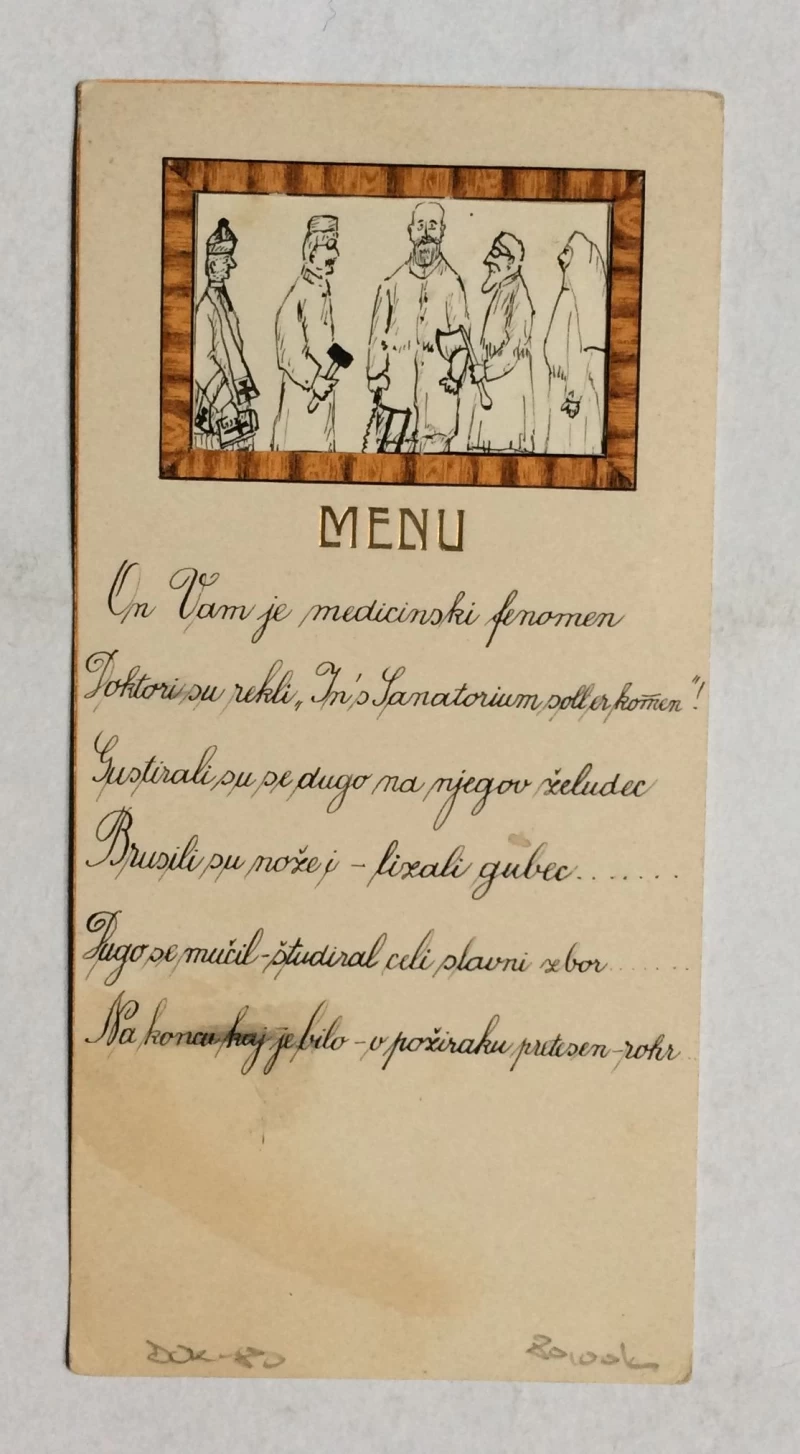 MENU
On Vam je medicinski fenomen
Doktori su rekli „In's Sanatorium soll er kom̅en"!
Gustirali su se dugo na njegov želudec
Brusili su nože i – lizali gubec.......
Dugo se mučil - študiral celi slavni zbor......
Na koncu kaj je bilo – v požiraku pretesen - rohr..